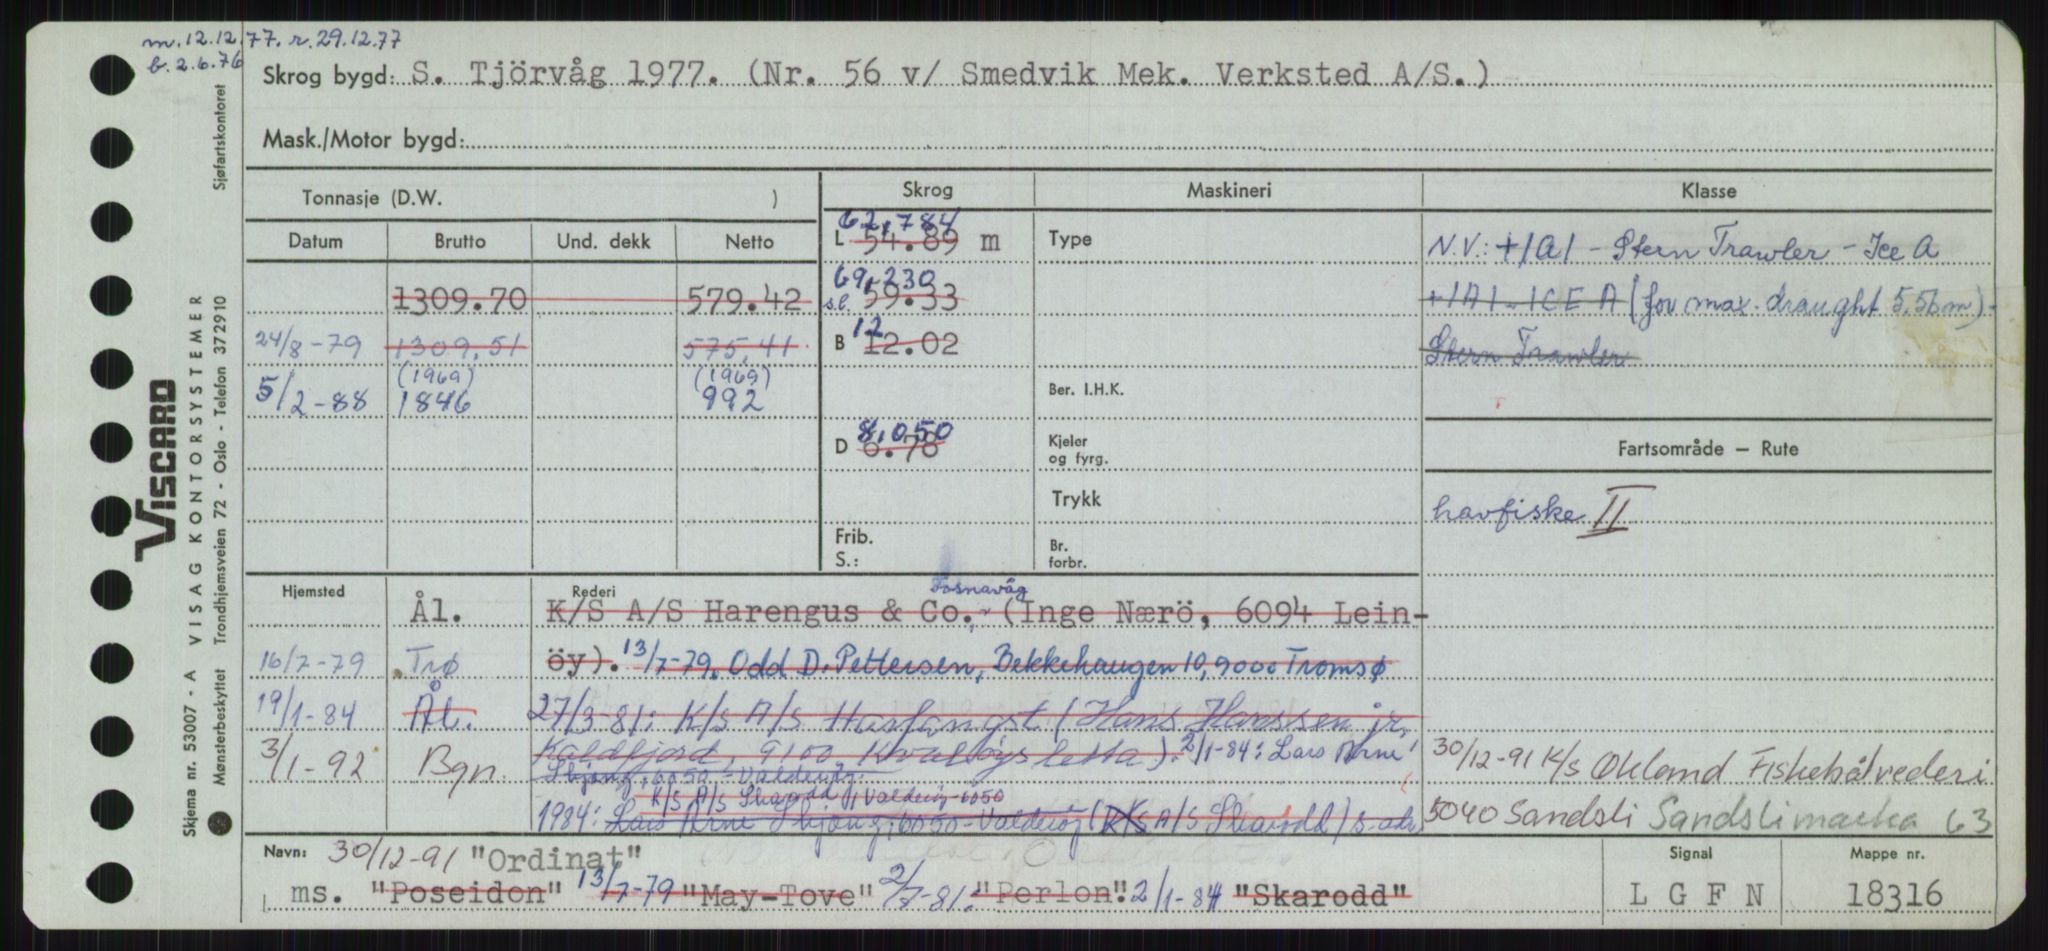 m. 12.12.77. r. 29.12.77
b. 2.6.76
Skrog bygd: S. Tjörvåg 1977. (Nr. 56 v/ Smedvik Mek. Verksted A/S.)
Mask./Motor bygd:
Tonnasje (D.W. )
Skrog Maskineri Klasse
Datum Brutto Und. dekk Netto
1309.70 579.42
24/8-79 1309,51 575,41
(1969) (1969)
5/2-88 1846 992
62,784
L 54.89 m
69,230
s.l. 59.33
12
B 12.02
8,050
D 6.78
Frib.
S.:
Type
Ber. I.H.K.
Kjeler
og fyrg.
Trykk
Br.
forbr.
N.V.: +1A1 - Stern Trawler - Ice A
+1A1 - ICE A (for max. draught 5.56m) -
Stern Trawler
Fartsområde — Rute
havfiske II
Hjemsted Rederi
Ål.
16/7-79 Trø
19/1-84 Ål.
3/1-92 Bgn.
Fosnavåg
K/S A/S Harengus & Co., (Inge Nærö, 6094 Lein-
öy). 13/7-79. Odd D. Pettersen, Bekkehaugen 10, 9000 Tromsø
27/3-81: K/S A/S Havfangst (Hans Hanssen jr.
Kaldfjord, 9100 Kvaløysletta). 2/1-84: Lars Arne
Skjong, 6050 - Valderöy.
K/S A/S Skarodd, Valderöy 6050
1984: Lars Arne Skjong, 6050 - Valderöy (K/S A/S Skarodd)
30/12-91 K/S Økland Fiskebåtrederi
5040 Sandsli Sandslimarka 63
Navn: 30/12-91 "Ordinat"
ms. "Poseidon" 13/7-79 "May-Tove" 2/7-81: "Perlon". 2/1-84 "Skarodd"
Signal
L G F N
Mappe nr.
18316
Skjema nr. 53007 - A VISAG KONTORSYSTEMER
VISCARD
Mønsterbeskyttet Trondhjemsveien 72 - Oslo - Telefon 372910 Sjøfartskontoret